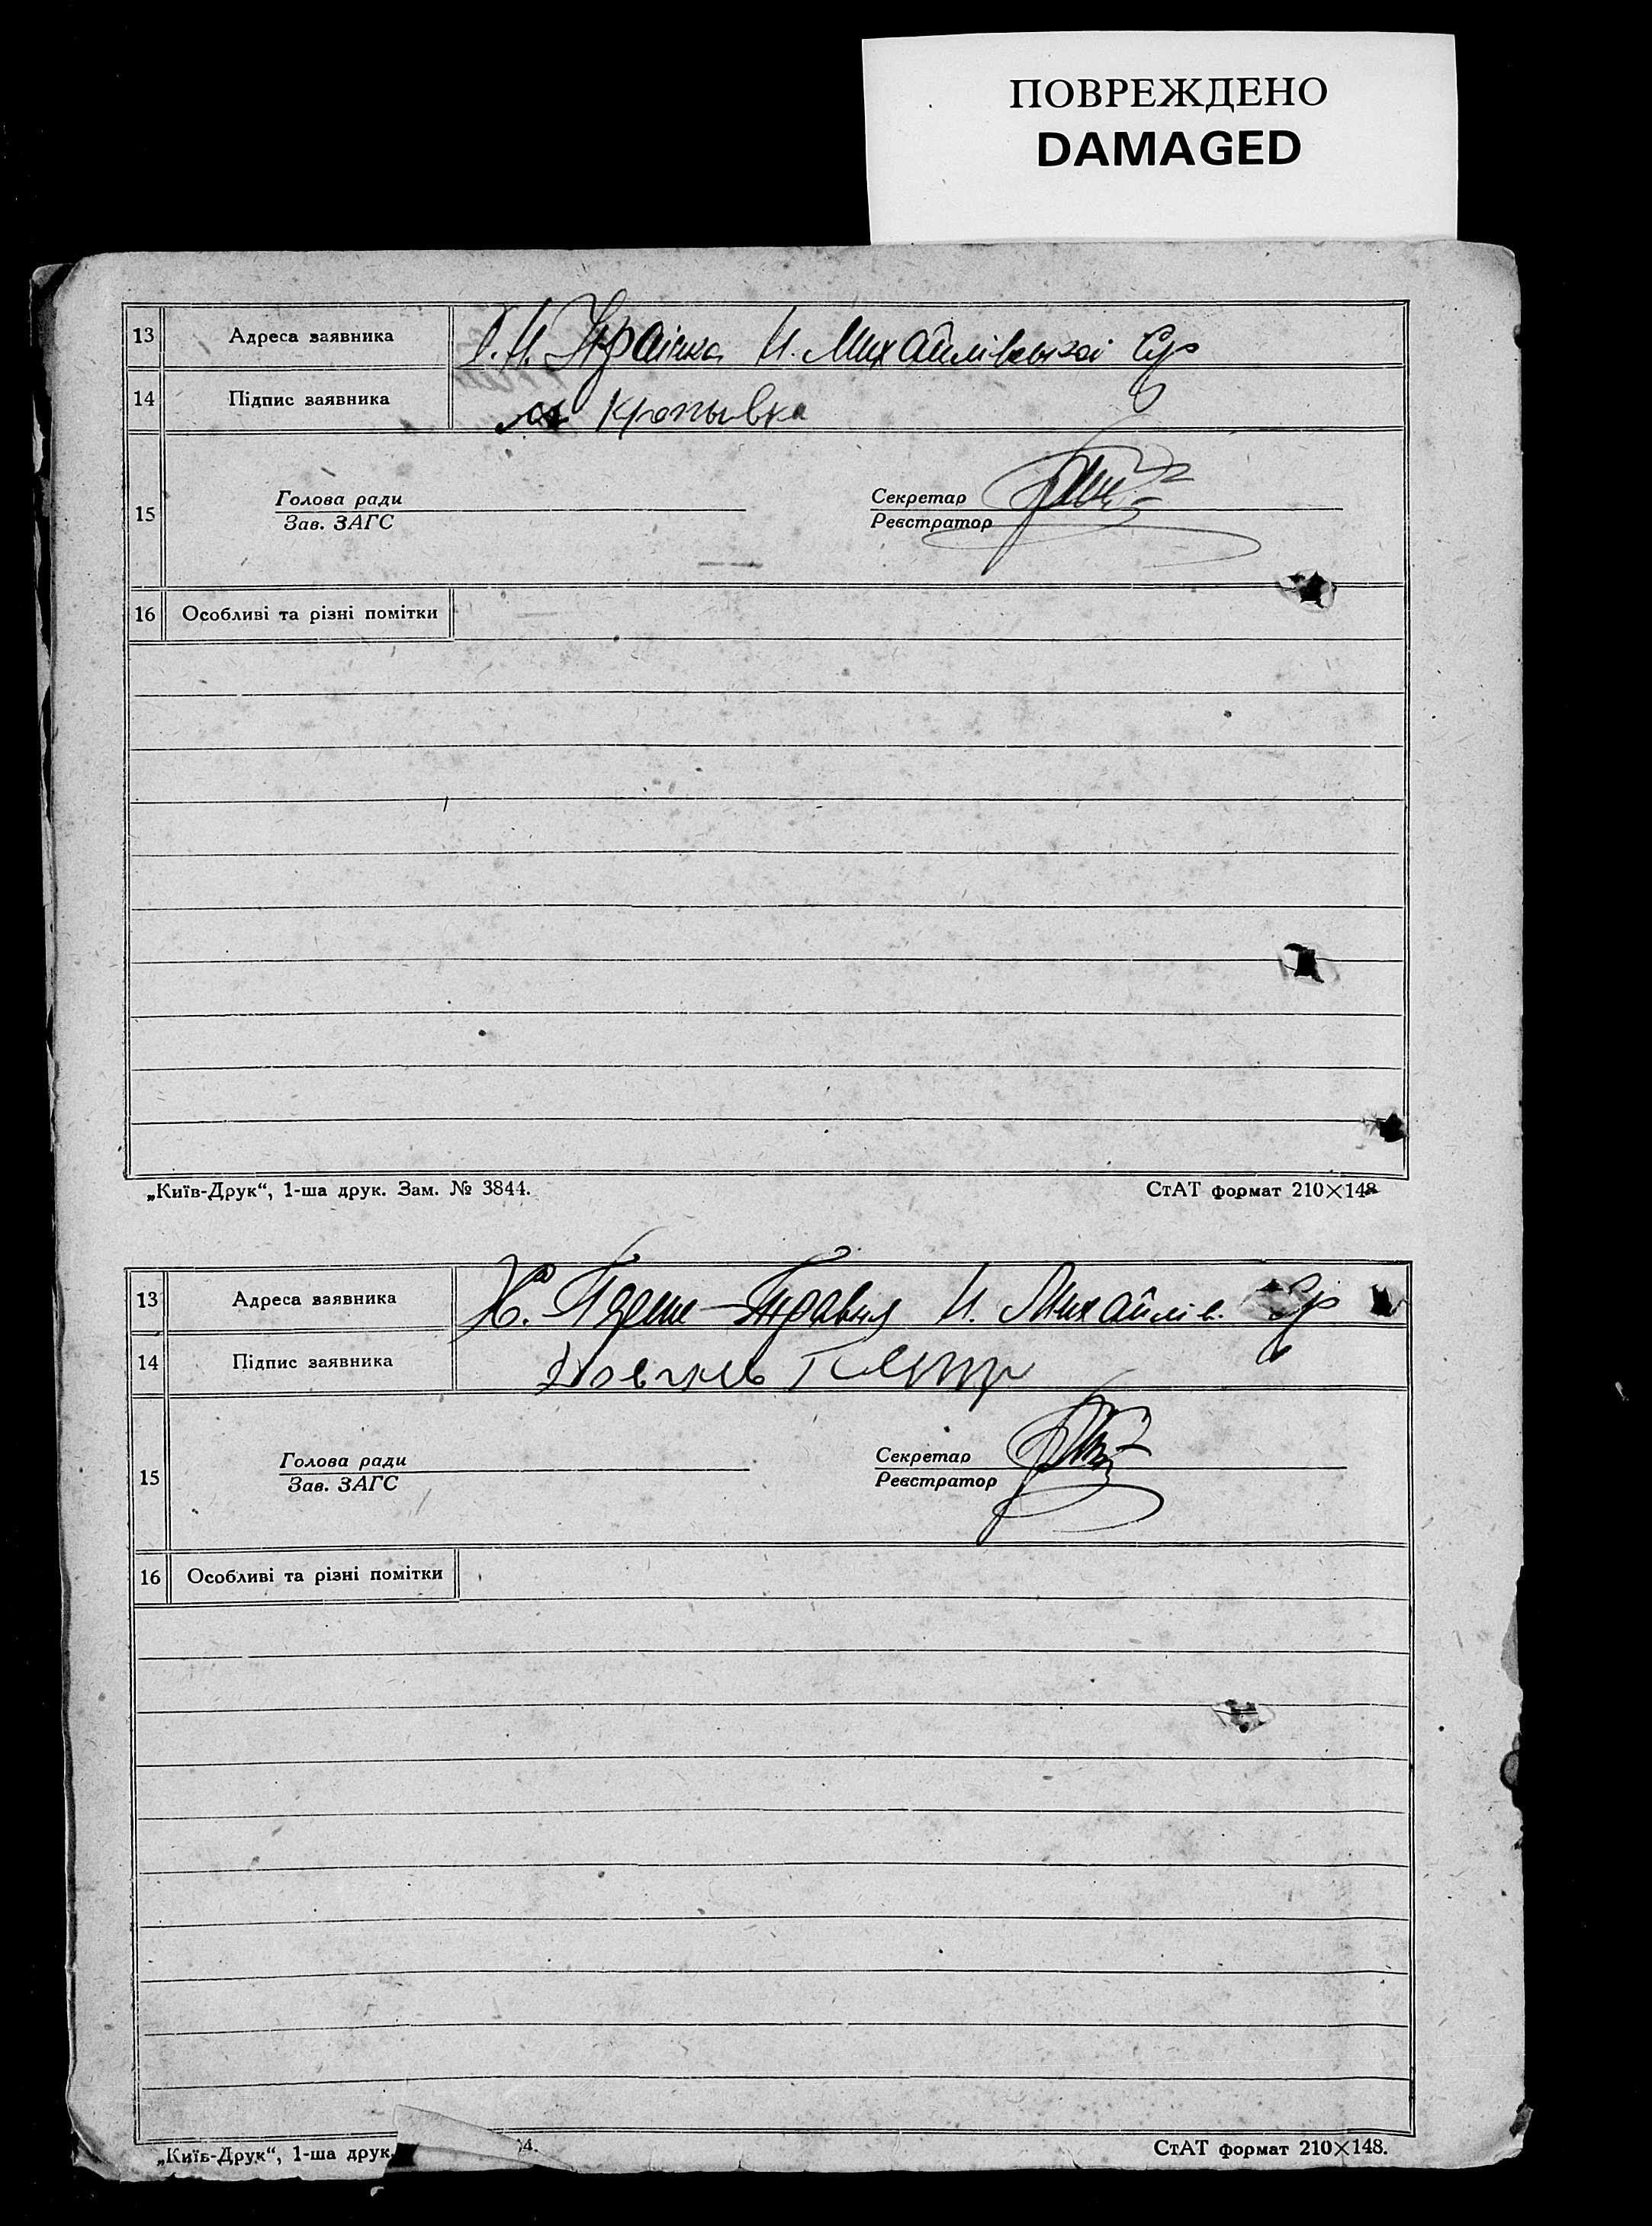 ПОВРЕЖДЕНО
DAMAGED
13 Адреса заявника Українка Н. Михайлівської С/р
14 Підпис заявника Кропывка
15 Голова ради Секретар
Зав. ЗАГС Реєстратор
16 Особливі та різні помітки
„Київ-Друк“, 1-ша друк. Зам. № 3844. СтАТ формат 210×148
13 Адреса заявника Х. Перше-Травня Н. Михайлів. С/р
14 Підпис заявника
15 Голова ради Секретар
Зав. ЗАГС Реєстратор
16 Особливі та різні помітки
„Київ-Друк“, 1-ша друк. 4. СтАТ формат 210×148.